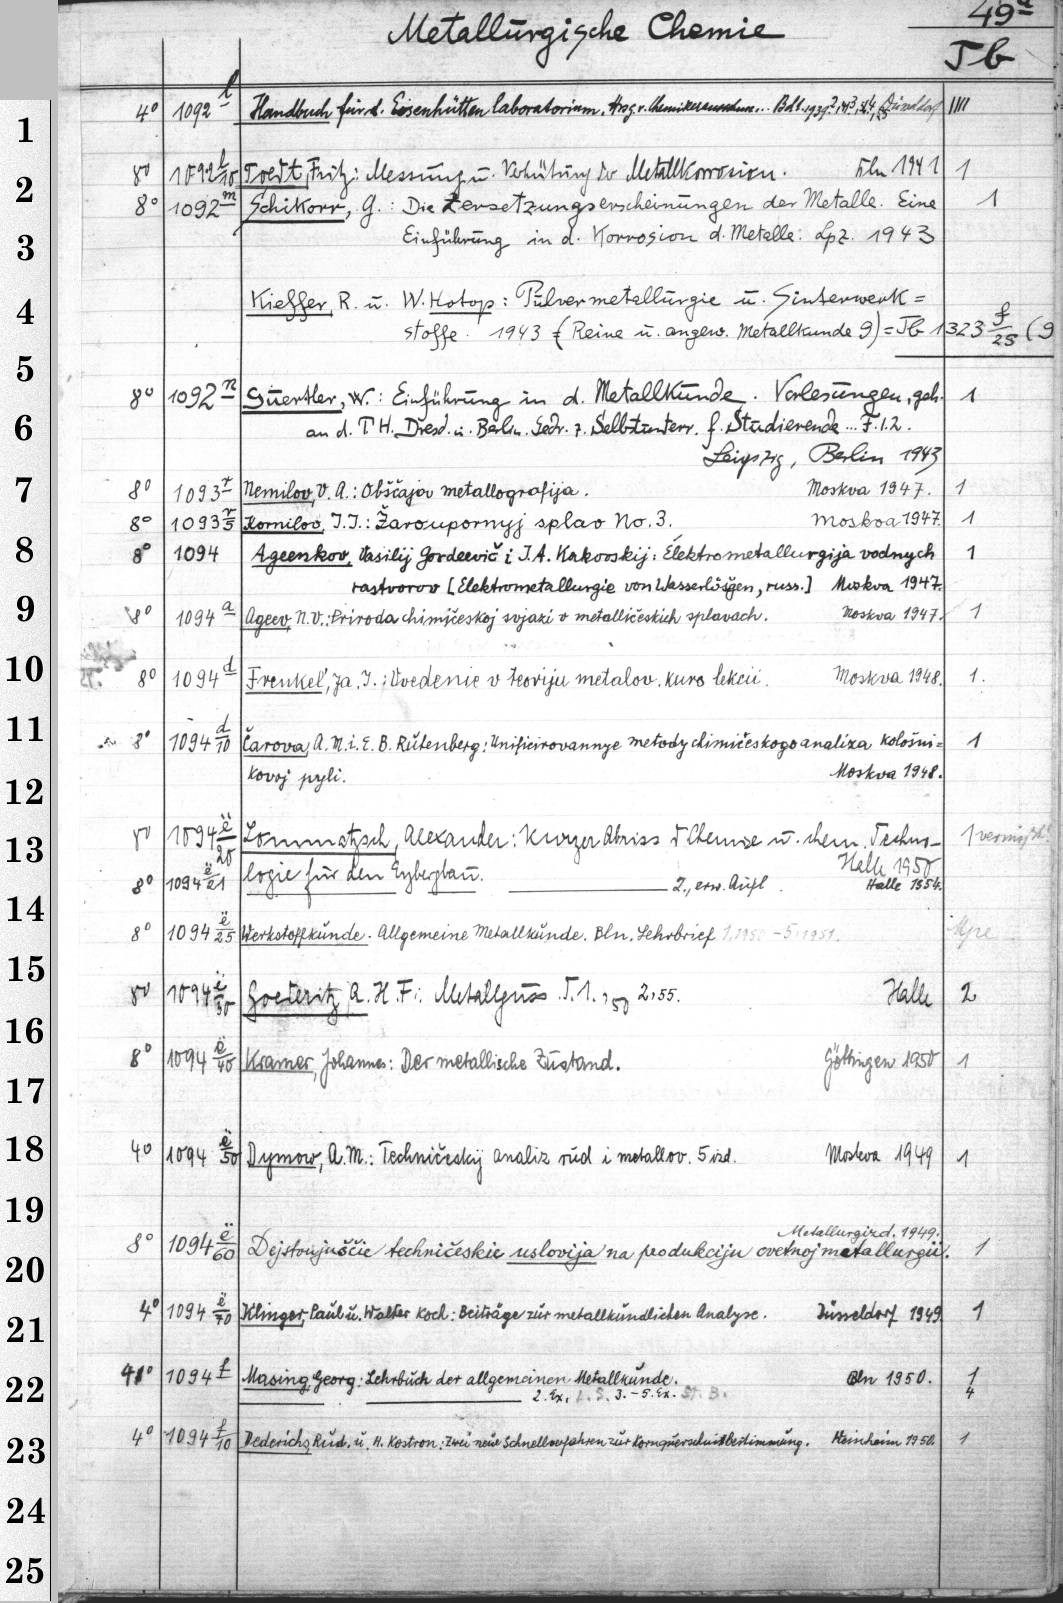 49a
Metallurgische Chemie
Tb
1 4° 1092 l Handbuch für d. Eisenhüttenlaboratorium. Hrsg. v. Chemikerausschuss... Bd 1. 1939. 2, 1941. 3, 4, Düsseldorf IIII
2 8° 1092 l/10 Toedt, Fritz: Messung u. Verhütung der Metallkorrosion. Bln 1941 1
8° 1092 m Schikorr, G.: Die Zersetzungserscheinungen der Metalle. Eine 1
3 Einführung in d. Korrosion d. Metalle. Lpz. 1943
4 Kieffer, R. u. W. Hotop: Pulvermetallurgie u. Sinterwerk=
stoffe. 1943 = (Reine u. angew. Metallkunde 9) = Tb 1323 f/25 (9
5
8° 1092 n Guertler, W.: Einführung in d. Metallkunde. Vorlesungen, geh. 1
6 an d. TH. Dresd. u. Berlin. Gedr. z. Selbstunterr. f. Studierende... F. 1.2.
Leipzig, Berlin 1943
7 8° 1093 r Nemilov, V. A.: Obščajav metallografija. Moskva 1947. 1
8° 1093 r/5 Kornilov, I. I.: Žaroupornyj splav No. 3. Moskva 1947. 1
8 8° 1094 Ageenkov, Vasilij Gordeevič i I. A. Kakovskij: Elektrometallurgija vodnych 1
rastvorov [Elektrometallurgie von Wasserlösgen, russ.] Moskva 1947.
9 8° 1094 a Ageev, N. V.: Priroda chimičeskoj svjazi v metalličeskich splavach. Moskva 1947. 1
10 8° 1094 d Frenkel', Ja. I.: Vvedenie v teoriju metalov. kurs lekcii. Moskva 1948. 1.
11 8° 1094 d/10 Čarova, A. N. i. E. B. Rutenberg: Unificirovannye metody chimičeskogo analiza kološni= 1
kovoj pyli. Moskva 1948.
12
13 8° 1094 ë/20 Lommatzsch, Alexander: Kurzer Abriss d Chemie u. chem. Techno- 1 vermißt!
logie für den Erzbergbau. Halle 1950
8° 1094 ë/21 2., erw. Aufl. Halle 1954.
14
8° 1094 ë/25 Werkstoffkunde. Allgemeine Metallkunde. Bln. Lehrbrief 1, 1950 - 5, 1951.
15
8° 1094 ë/30 Goederitz, A. H. F.: Metallguss. T. 1., 50 2, 55. Halle 2
16
8° 1094 ë/40 Kramer, Johannes: Der metallische Zustand. Göttingen 1950 1
17
18 4° 1094 ë/50 Dymow, A. M.: Techničeskij analiz rud i metallov. 5 izd. Moskva 1949 1
19
Metallurgizd. 1949.
20 8° 1094 ë/60 Dejstvujuščie techničeskie uslovija na produkciju cvetnoj metallurgii. 1
21 4° 1094 ë/70 Klinger, Paul u. Walter Koch: Beiträge zur metallkundlichen Analyse. Düsseldorf 1949. 1
22 4° 1094 f Masing, Georg: Lehrbuch der allgemeinen Metallkunde. Bln 1950. 1
2. Ex. L. S. 3. - 5. Ex. St. B. 4
23 4° 1094 f/10 Dederichs, Rud. u. H. Kostron: Zwei neue Schnellverfahren zur Kornquerschnittbestimmung. Meinheim 1950. 1
24
25